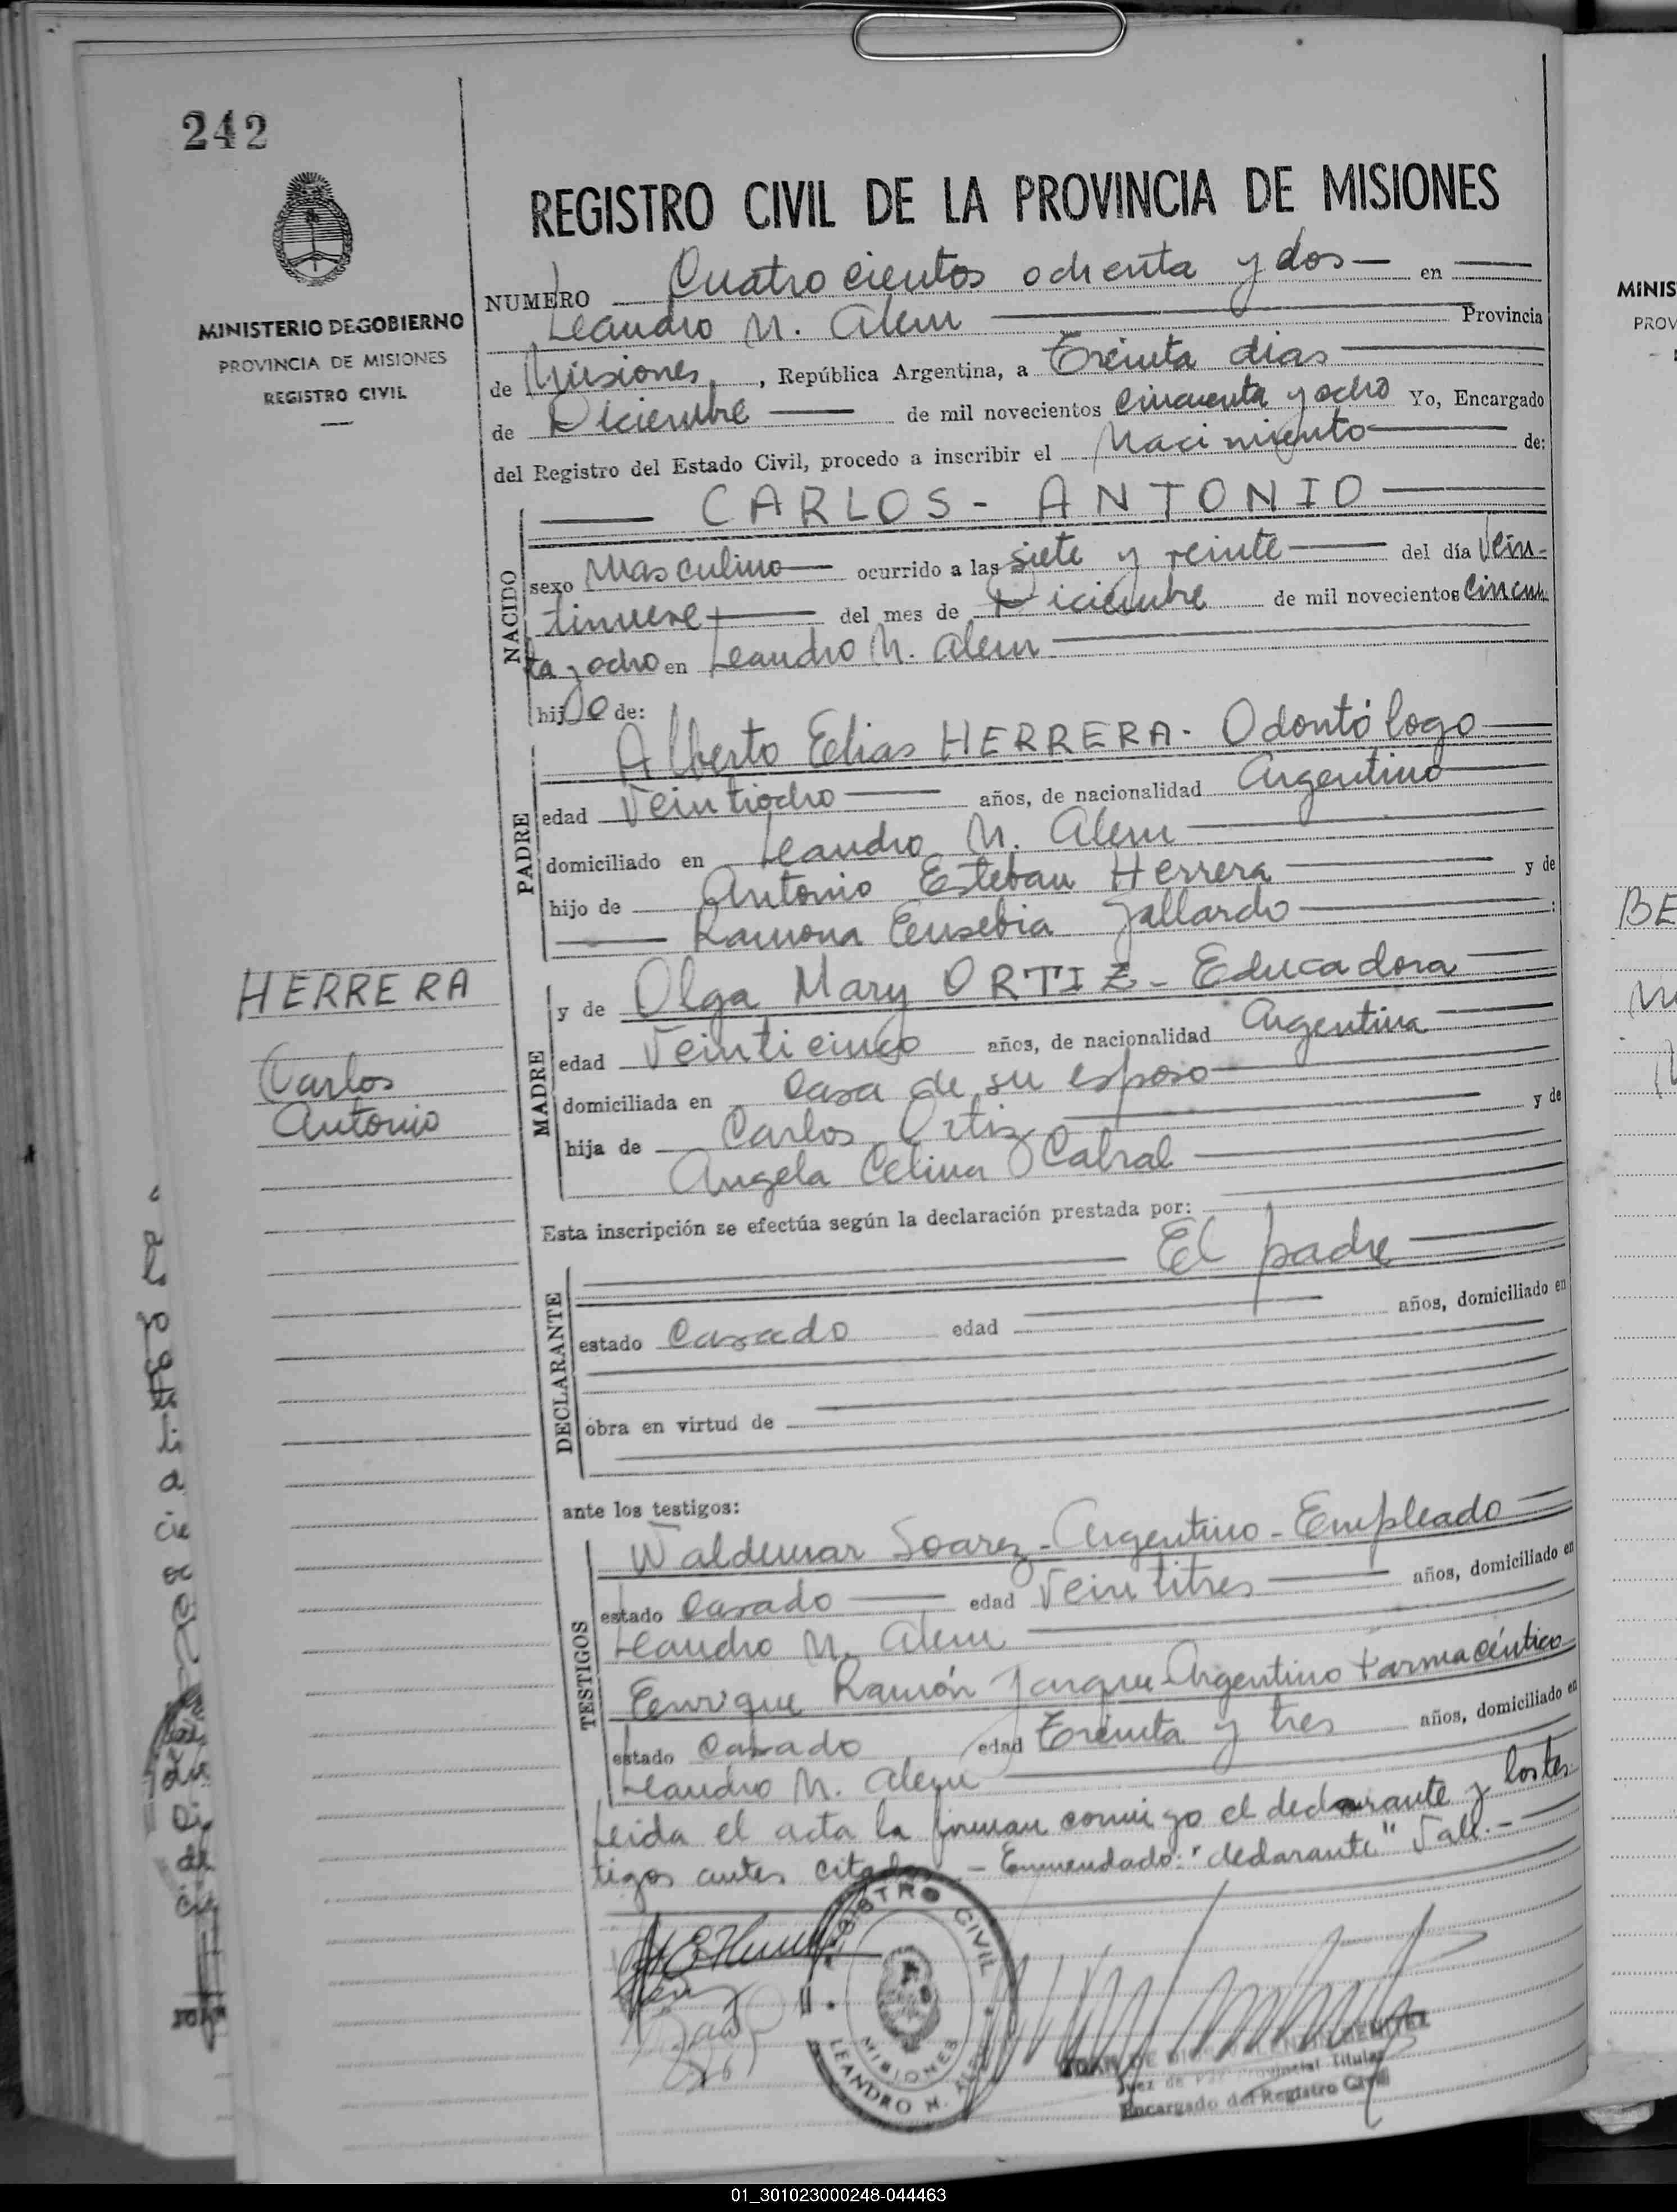 242
MINISTERIO DE GOBIERNO
PROVINCIA DE MISIONES
REGISTRO CIVIL
REGISTRO CIVIL DE LA PROVINCIA DE MISIONES
NUMERO Cuatro cientos ochenta y dos — en
Leandro N. Alem — Provincia
de Misiones, República Argentina, a Treinta dias
de Diciembre — de mil novecientos cincuenta y ocho Yo, Encargado
del Registro del Estado Civil, procedo a inscribir el Nacimiento — de:
NACIDO
— CARLOS - ANTONIO —
sexo Masculino — ocurrido a las siete y veinte — del día vein-
tinueve — del mes de Diciembre de mil novecientos cincuen
ta y ocho en Leandro N. Alem
hijo de:
PADRE
Alberto Elias HERRERA - Odontólogo
edad Veintiocho — años, de nacionalidad Argentino
domiciliado en Leandro N. Alem
hijo de Antonio Esteban Herrera — y de
— Ramona Eusebia Gallardo — :
HERRERA
Carlos
Antonio
MADRE
y de Olga Mary ORTIZ - Educadora
edad Veinticinco años, de nacionalidad Argentina
domiciliada en casa de su esposo
hija de Carlos Ortiz — y de
Angela Celina Cabral
Esta inscripción se efectúa según la declaración prestada por:
El padre
DECLARANTE
estado Casado edad — años, domiciliado en
obra en virtud de
ante los testigos:
TESTIGOS
Waldemar Soarez - Argentino - Empleado
estado Casado — edad Veintitres — años, domiciliado en
Leandro N. Alem
Enrique Ramón Argentino Farmacéutico
estado Casado edad Treinta y tres años, domiciliado en
Leandro N. Alem
Leida el acta la firman conmigo el declarante y los tes-
tigos antes citados — Enmendado: "declarante" Vale.-
REGISTRO CIVIL
MISIONES
LEANDRO N. ALEM
JUAN DE DIOS VALENTIN BENITEZ
Juez de Paz Provincial Titular
Encargado del Registro Civil
MINIS
PROV
BE
01_301023000248-044463